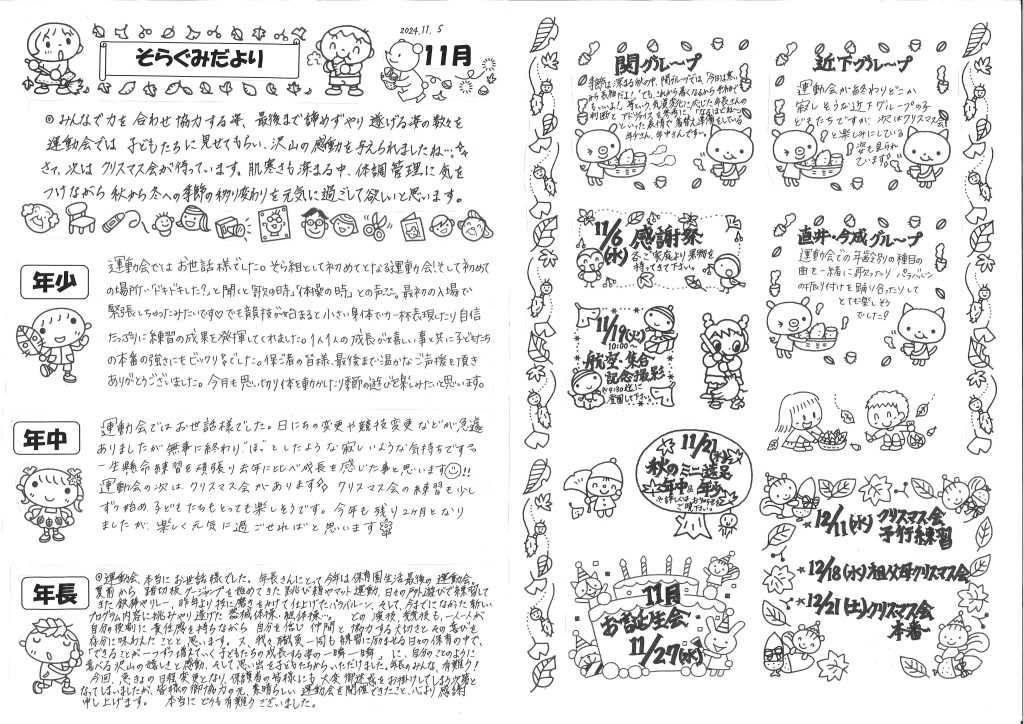 そらぐみだより
2024.11.5
11月
◎みんなで力を合わせ協力する姿、最後まで諦めずやり遂げる姿の数々を
運動会では子どもたちに見せてもらい、沢山の感動を与えられましたね…
さて、次はクリスマス会が待っています。肌寒さも深まる中、体調管理に気を
つけながら秋から冬への季節の移り変わりを元気に過ごして欲しいと思います。
年少
運動会ではお世話様でした。そら組として初めてとなる運動会!そして初めて
の場所…「ドキドキした?」と聞くと「歌の時」「体操の時」との声が。最初の入場で
緊張しちゃったみたいです♡でも競技が始まると小さい身体で力一杯表現したり自信
たっぷりに練習の成果を発揮してくれました。1人1人の成長が嬉しい事と共に子どもたち
の本番の強さにもビックリ!でした。保護者の皆様、最後まで温かなご声援を頂き
ありがとうございました。今月も思い切り体を動かしたり季節の遊びを楽しみたいと思います。
年中
運動会ではお世話様でした。日にちの変更や競技変更などが急遽
ありましたが無事に終わり、ほっとしたような寂しいような気持ちです
一生懸命練習を頑張り去年に比べ成長を感じた事と思います!!
運動会の次は、クリスマス会があります。クリスマス会の練習も少し
ずつ始め、子どもたちもとっても楽しそうです。今年も残り2ヶ月となり
ましたが、楽しく元気に過ごせればと思います
年長
◎運動会、本当にお世話様でした。年長さんにとって今年は保育園生活最後の運動会。
夏前から踏切板、ゲージングを進めてきた跳び箱やマット運動、日々の戸外遊びで練習して
きた鉄棒やリレー、昨年より技に磨きをかけて仕上げたパラバルーン、そして、今までになかった新しい
プログラム内容に挑みやり遂げた器械体操、組体操…どの演技、競技も、一人一人が
自分の役割に責任感を持ちながら自分を信じ仲間と協力する大切さとその喜びを
存分に味わえたことと思います。又、我々職員一同も練習に励ませる日々の保育の中で、
「できること」が一つずつ増えていく子どもたちの成長する姿の一瞬一瞬に、自分のことのように
喜べる沢山の嬉しさと感動、そして思い出を子どもたちからいただけました。年長のみんな、有難く!
今回、急きょの日程変更となり、保護者の皆様にも大変御迷惑をお掛けしてしまう次第と
なってしまいましたが、皆様の御協力の元、素晴らしい運動会を開催できたこと、心より感謝
申し上げます。本当にどうも有難うございました。
関グループ
季節は深まる秋の中、関グループでは、「今日は寒い
から長袖だよ!」「でも、これから暑くなるから半袖で
もいいよ!」等という気温変化に応じた年長さんの
判断とアドバイスを参考に、「なるほどね〜」
といった表情で着替え準備をしている
年少さん、年中さんです…
近下グループ
運動会が終わりどこか
寂しそうな近下グループの子
どもたちですが、次はクリスマス会
と楽しみにしている
姿も見られ
ています
11/6(水)
感謝祭
各ご家庭より果物を
持ってきて下さい。
直井・今成グループ
運動会での年齢別の種目の
曲を一緒に歌ったりパラバルーン
の振り付けを踊り合ったりして
とても楽しそう
でした!?
11/19(火)
10:00〜
航空・集合
記念撮影
※9:30迄に
登園して下さい。
11/21(木)
秋のミニ遠足
年中&年少
※詳しくはお知らせを
ご覧下さい。
11月
お誕生会
11/27(水)
12/11(水)クリスマス会
予行練習
12/18(水)祖父母クリスマス会
12/21(土)クリスマス会
本番